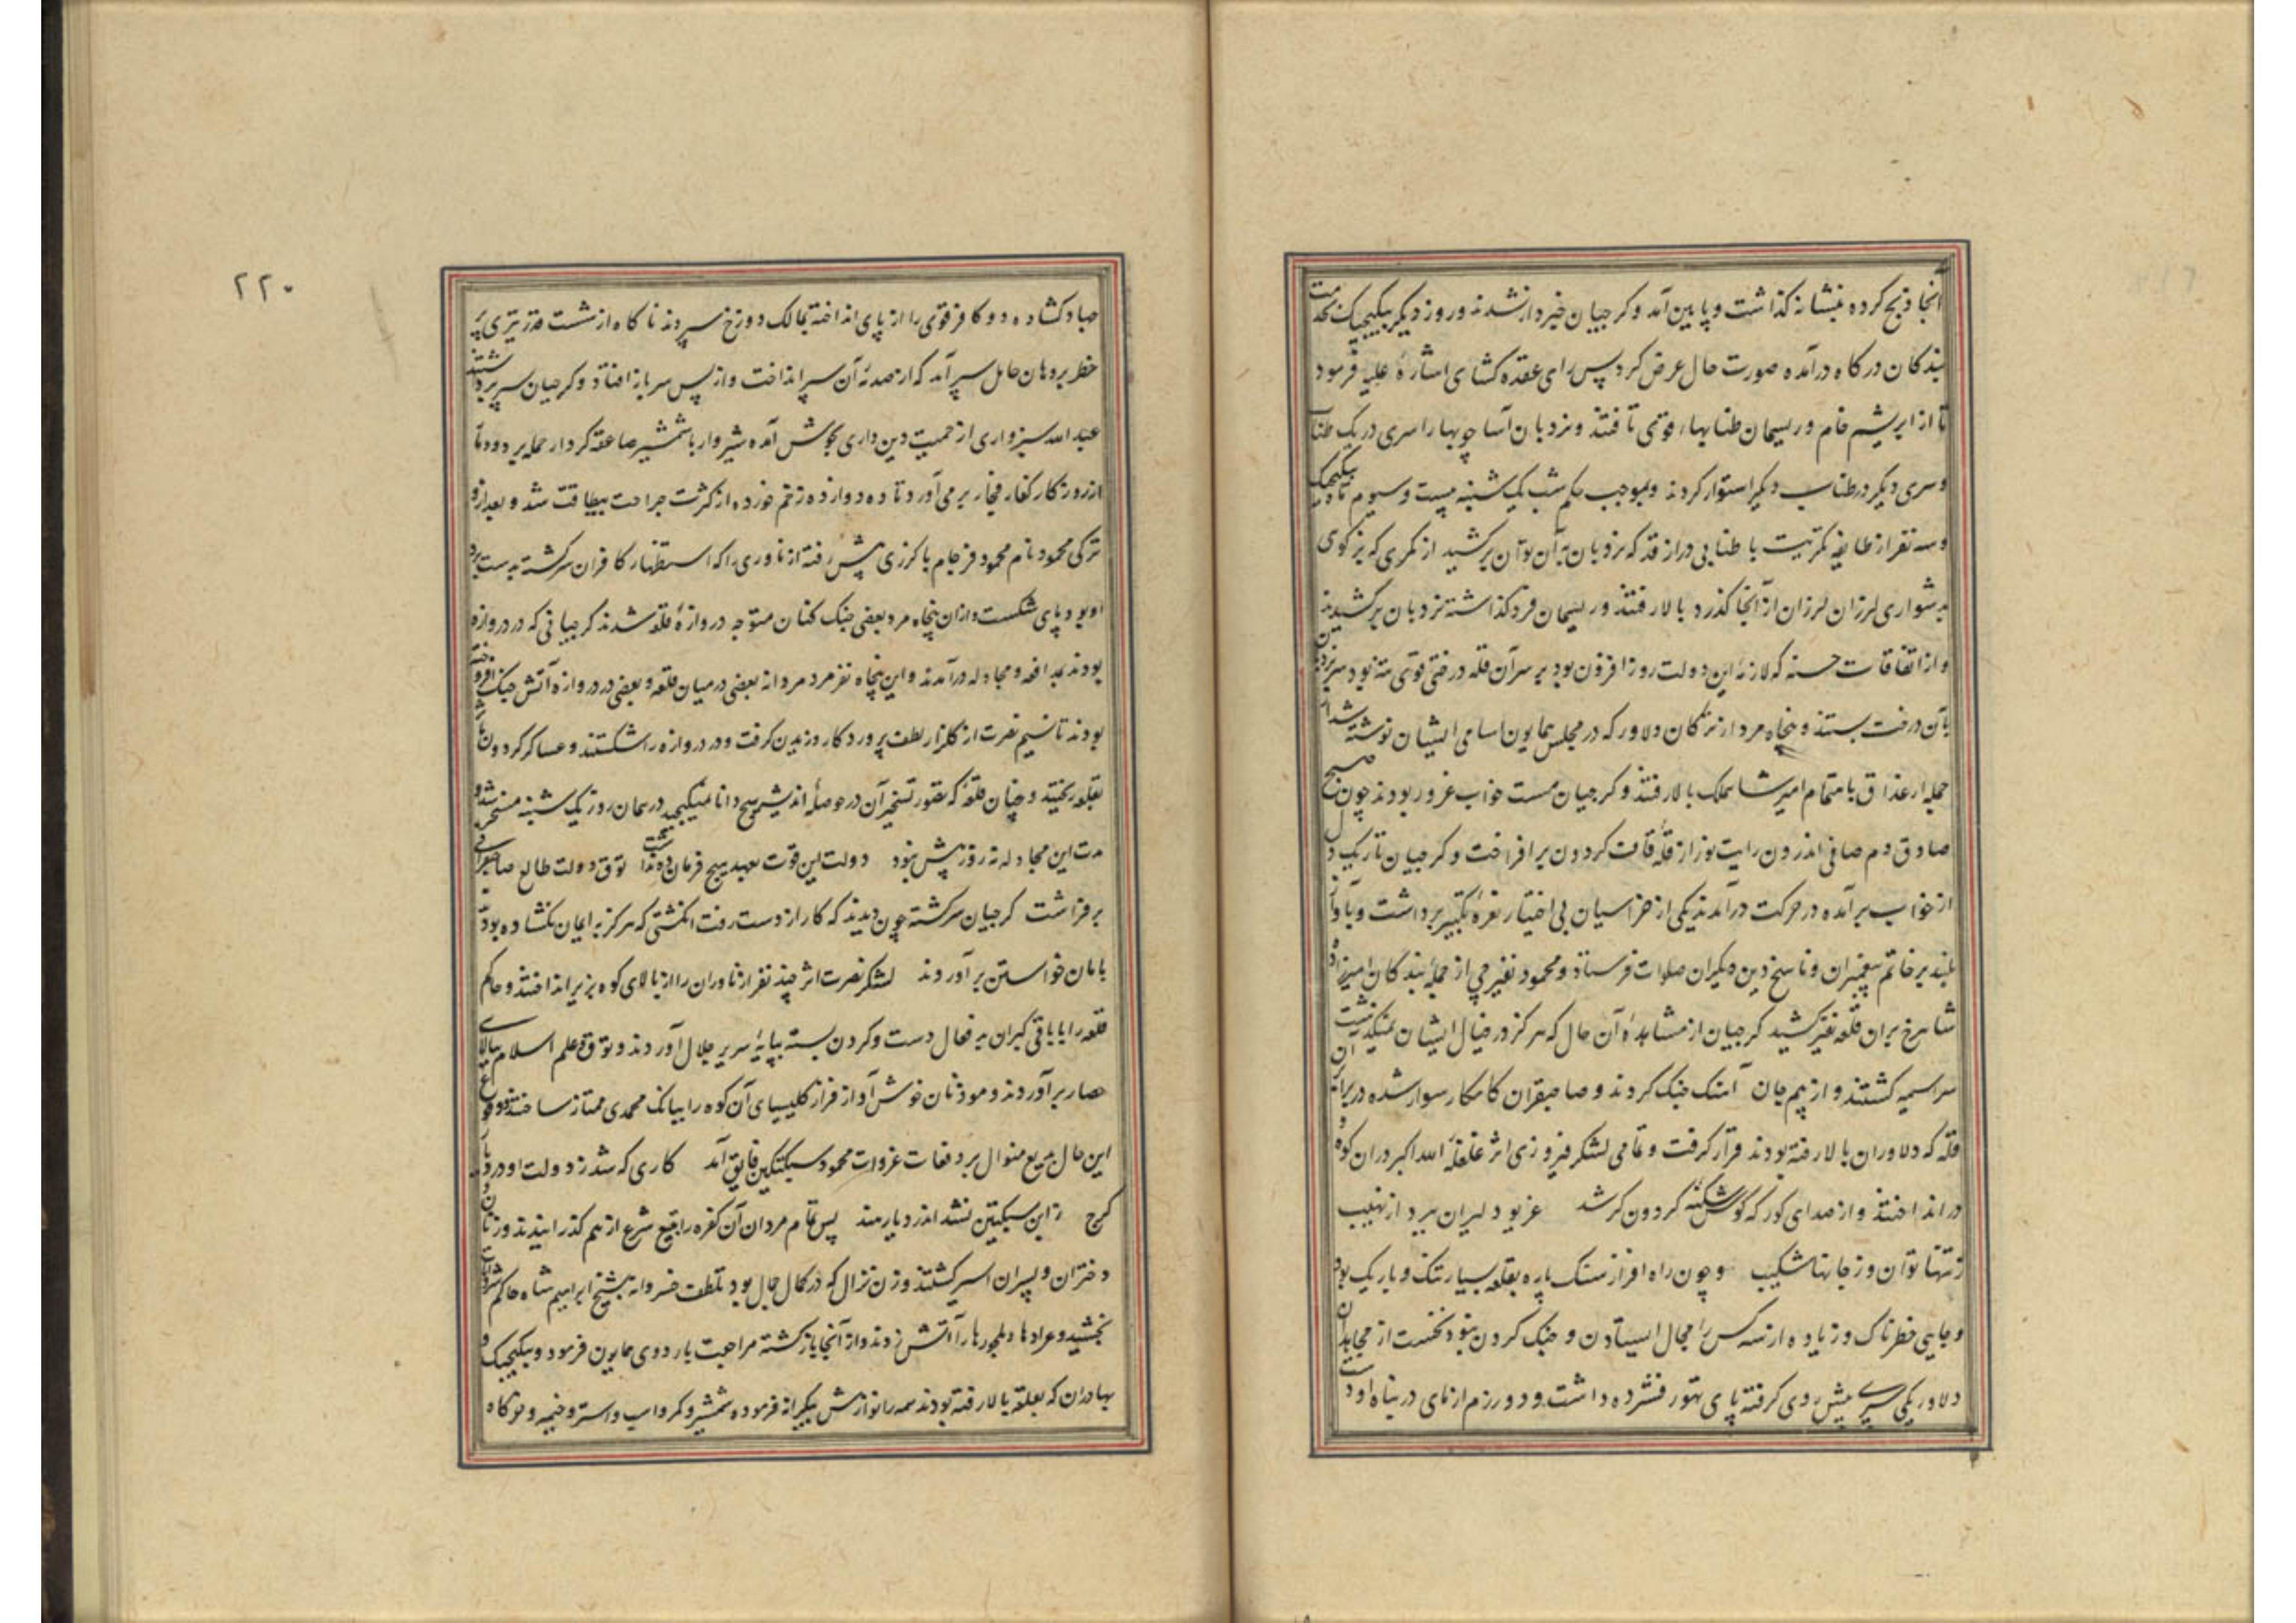 آنجا ذبح کرده بنشانه کذاشت و پایین آمد و کرجیان خبردار نشدند و روز دیکر بیکیجک بخدمت
بندکان درکاه درآمده صورت حال عرض کرد پس رای عقده کشای اشارهٔ علیه فرمود
تا از ابریشم خام و ریسمان طنابهاء قوی تافتند و نردبان آسا چوبها را سری در یک طناب
و سری دیکر در طناب دیکر استوار کردند و بموجب حکم شب یک شنبه بیست و سیوم ماه بیکیجک
و سه نفر از طایفه مکریت با طنابی دراز قد که نردبان به آن توان برکشید از کمری که بزکوهی
بدشواری لرزان لرزان از آنجا کذرد بالا رفتند و ریسمان فرو کذاشته نردبان برکشیدند
و از اتفاقات حسنه که لازمهٔ این دولت روز افزون بود بر سر آن قله درختی قوی رسته بود سر نردبان
با آن درخت بستند و پنجاه مرد از ترکان دلاور که در مجلس همایون اسامی ایشان نوشته شد از
جمله ارغداق باهتمام امیر شاهملک بالا رفتند و کرجیان مست خواب غرور بودند چون صبح
صادق دم صافی اندرون رایت نور از قلهٔ قاف کردون بر افراخت و کرجیان تاریک دل
از خواب برآمده در حرکت درآمدند یکی از خراسیان بی اختیار نعرهٔ تکبیر برداشت و بآواز
بلند بر خاتم پیغمبران و ناسخ دین دیکران صلوات فرستاد و محمود نفیرچی از جملهٔ بندکان امیرزاده
شاهرخ بران قلعه نفیر کشید کرجیان از مشاهدهٔ آن حال که هرکز در خیال ایشان نمیکذشت
سراسمیه کشتند و از بیم جان آهنک جنک کردند و صاحبقران کامکار سوار شده در برابر آن
قله که دلاوران بالا رفته بودند قرار کرفت و تمامی لشکر فیروزی اثر غلغلهٔ الله اکبر در ان کوه
در انداختند و از صدای کورکه کوش کنبد کردون کر شد غریو دلیران ببرد از نهیب
زتنها توان و زجانها شکیب و چون راه از فراز سنک پاره بقلعه بسیار تنک و باریک بود
و جایی خطرناک و زیاده از سه کس را مجال ایستادن و جنک کردن نبود نخست از مجاهدان
دلاور یکی سپر پیش روی کرفته پای تهور فشرده داشت و دو رزم آزمای در پناه او دست
۲۲۰
جهاد کشاده دو کافر قوی را از پای انداخته بمالک دوزخ سپردند ناکاه از شست قدر تیری پر
خطر بر دهان حامل سپر آمد که از صدمهٔ آن سپر انداخت و از پس سر باز افتاد و کرجیان سپر برداشتند
عبد الله سبزواری از حمیت دین داری بجوش آمده شیروار با شمشیر صاعقه کردار حمله برد و دمار
از روزکار کفار فجار بر می آورد تا ده دوازده زخم خورده از کثرت جراحت بیطاقت شد و بعد ازو
ترکی محمود نام محمود فرجام با کرزی پیش رفته ازناوری را که استظهار کافران سرکشته بدست برد
او بود پای شکست و ازان پنجاه مرد بعضی جنک کنان متوجه دروازهٔ قلعه شدند کرجیانی که در دروازه
بودند بمدافعه و مجادله درآمدند و این پنجاه نفر مرد مردانه بعضی در میان قلعه و بعضی در دروازه آتش جنک افروخته
بودند تا نسیم نصرت از کلزار لطف پروردکار وزیدن کرفت و در دروازه را شکستند و عساکر کردون مآثر
بقلعه ریختند و چنان قلعهٔ که تصور تسخیر آن در حوصلهٔ اندیشهٔ هیچ دانا نمیکنجید در همان روز یک شنبه مسخر شد و
مدت این مجادله نه روز بیش نبود دولت این قوت بعهد هیچ فرمان ده نداشت توق دولت طالع صاحبقرانی
برفراشت کرجیان سرکشته چون دیدند که کار از دست رفت انکشتی که هرکز به ایمان نکشاده بودند
بامان خواستن برآوردند لشکر نصرت اثر چند نفر ازناوران را از بالای کوه بزیر انداختند و حاکم
قلعه را با باقی کبران بد فعال دست و کردن بسته بپایهٔ سریر جلال آوردند و توق و علم اسلام ببالای
حصار برآوردند و موذنان خوش آواز فراز کلیسیای آن کوه را ببانک محمدی ممتاز ساختند و وقوع
این حال بدیع منوال بر دفعات غزوات محمود سبکتکین فایق آمد کاری که شد ز دولت او در دیار
کرج زابن سبکتین نشد اندر دیار هند پس تمام مردان آن کفره را بتیغ شرع از هم کذرانیدند و زنان و
دختران و پسران اسیر کشتند و زن نزال که در کمال جمال بود بلطف خسروانه بشیخ ابراهیم شاه حاکم شروانات
بخشید و عرادها و ملجورها را آتش زدند و از آنجا بازکشته مراجعت باردوی همایون فرمود و بیکیجک و
بهادران که بقلعه بالا رفته بودند همه را نوازش بیکرانه فرموده شمشیر و کمر و اسب و استر و خیمه و خرکاه